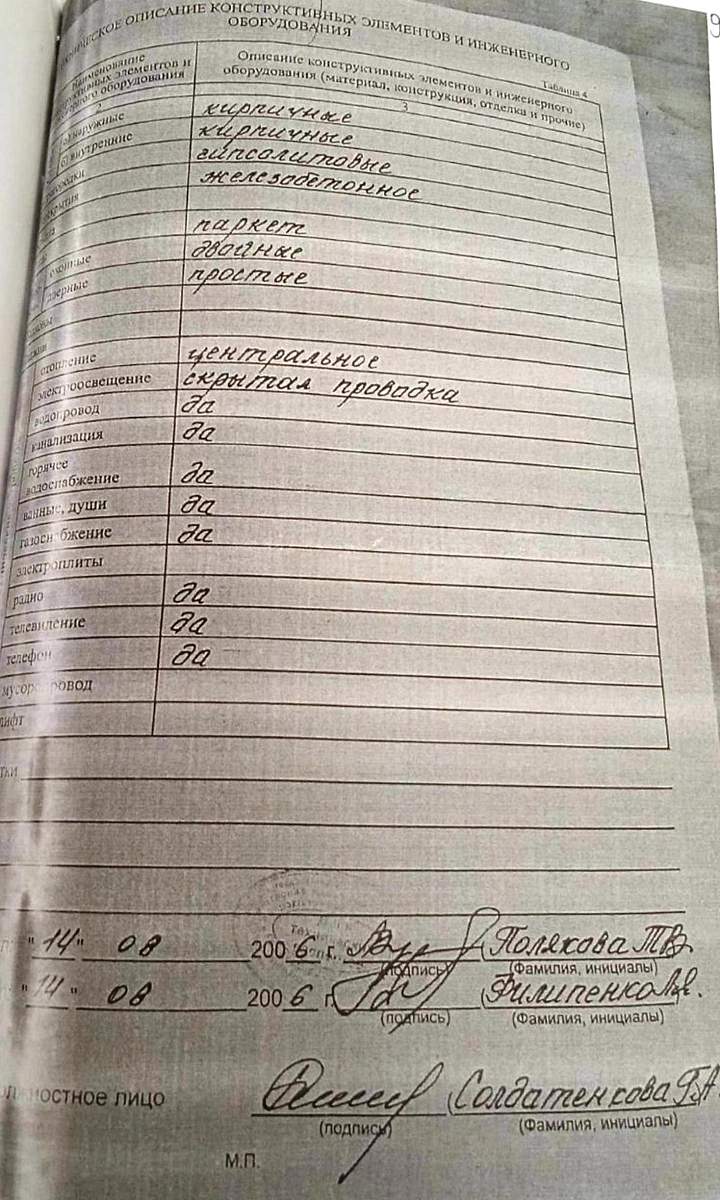 ОПИСАНИЕ КОНСТРУКТИВНЫХ ЭЛЕМЕНТОВ И ИНЖЕНЕРНОГО
ОБОРУДОВАНИЯ
Таблица 4
Наименование
элементов и
оборудования
Описание конструктивных элементов и инженерного
оборудования (материал, конструкция, отделка и прочие)
2
3
наружные кирпичные
внутренние кирпичные
гипсолитовые
железобетонное
паркет
двойные
дверные простые
отопление центральное
электроосвещение скрытая проводка
водопровод да
канализация да
горячее
водоснабжение да
ванные, души да
да
электроплиты
радио да
телевидение да
телефон да
"14" 08 2006 г. (Полякова Т.В.
(подпись) (Фамилия, инициалы)
"14" 08 2006 г. (Филипенко
(подпись) (Фамилия, инициалы)
лицо (Солдатенкова
(подпись) (Фамилия, инициалы)
М.П.
9